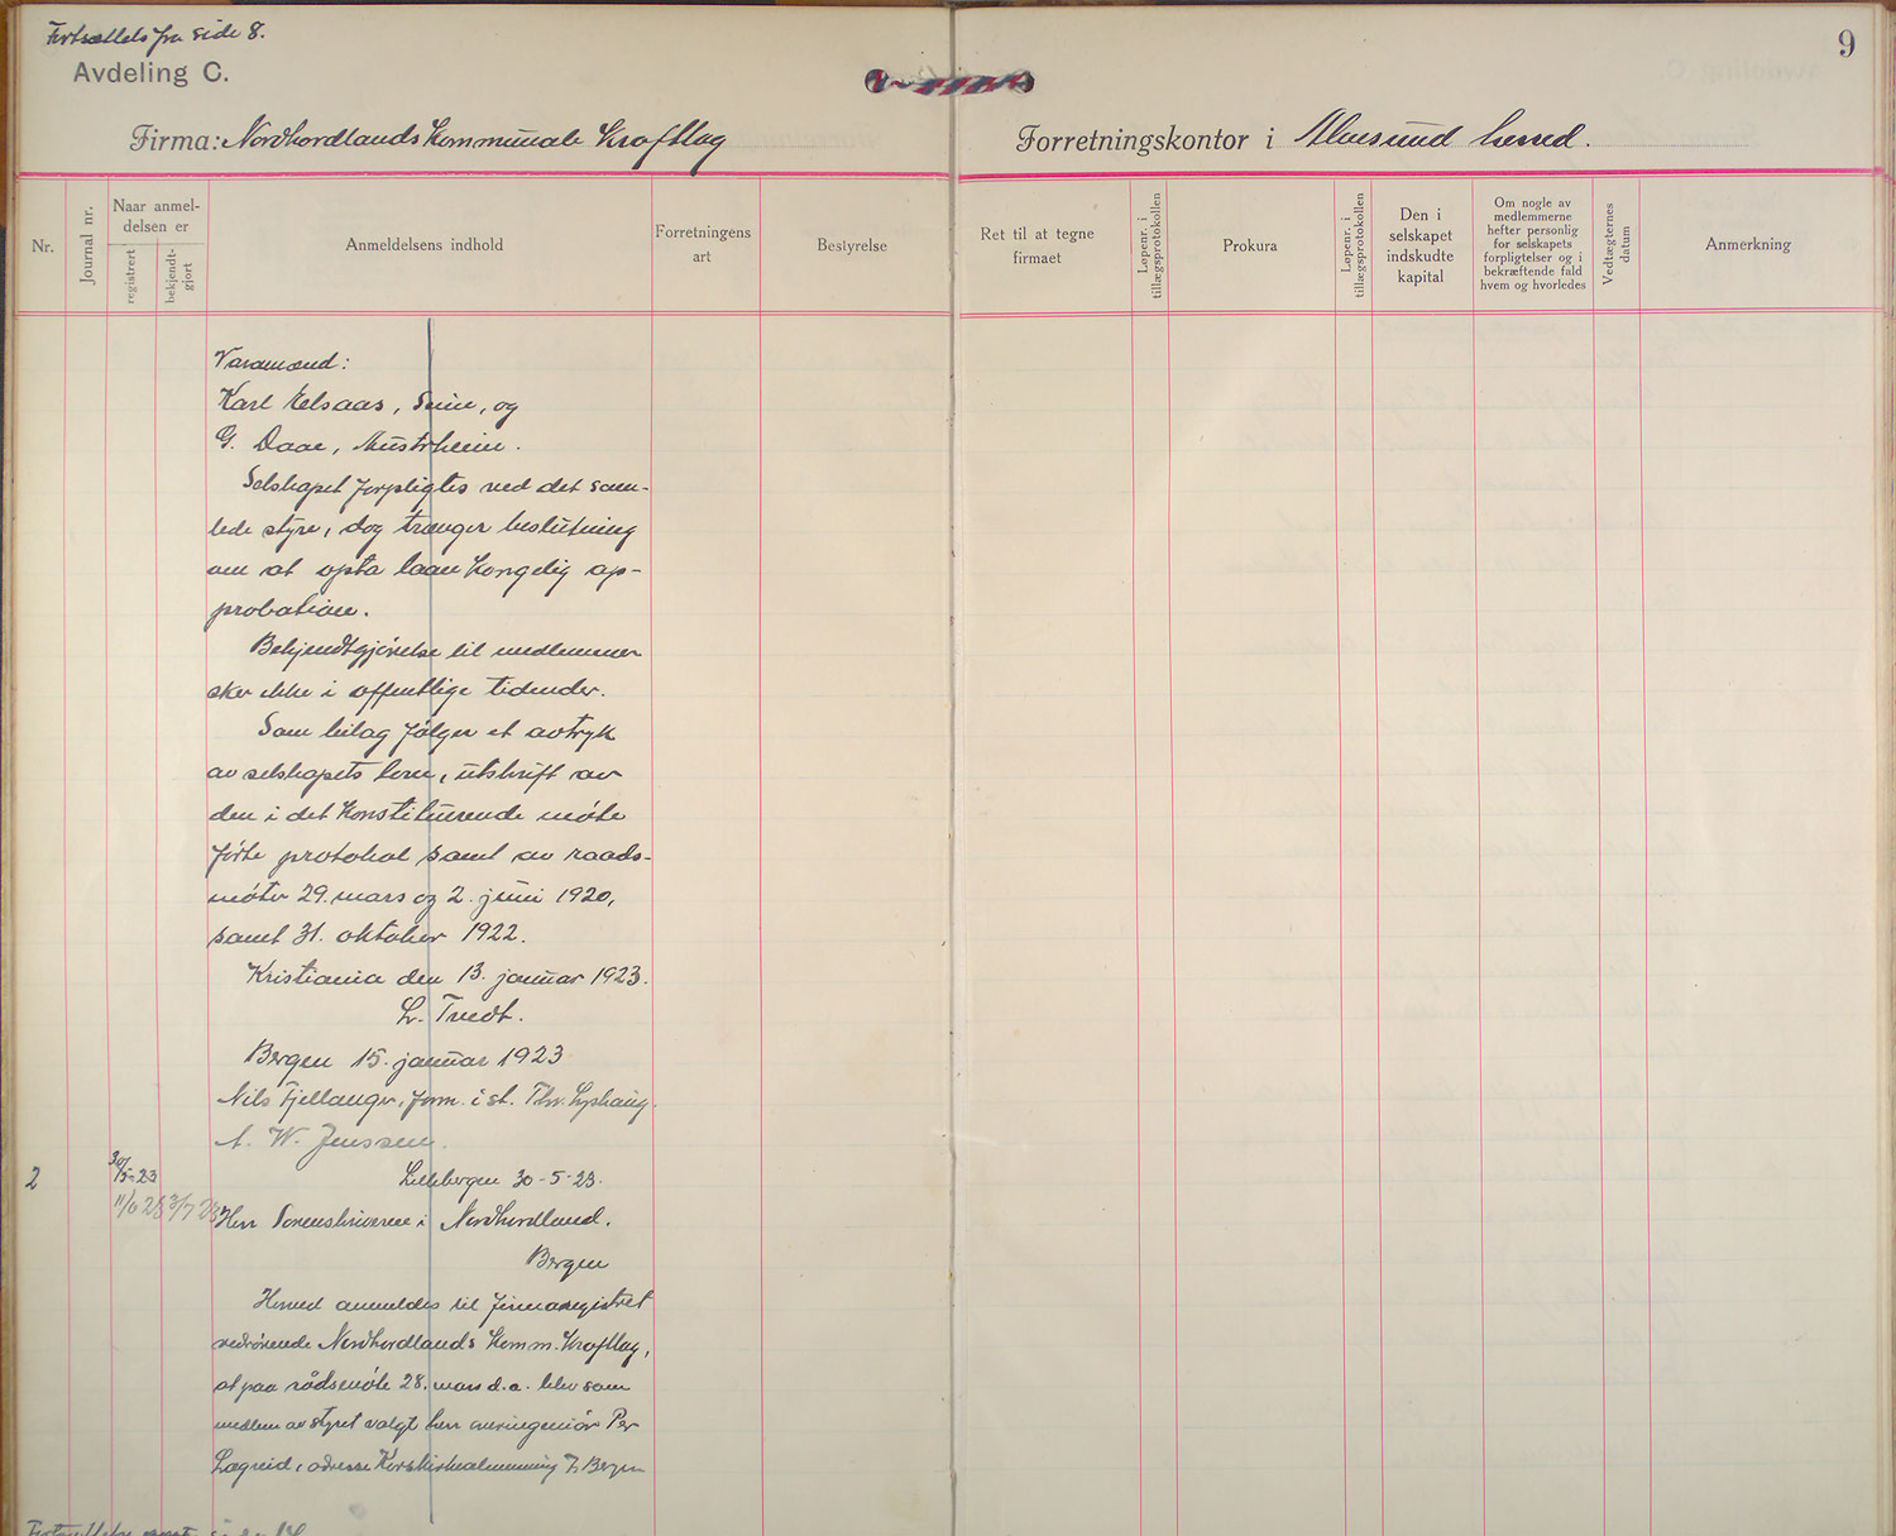 Fortsættels fra side 8.
9
Avdeling C.
Firma: Nordhordlands Kommunale Kraftlag
Forretningskontor i Alversund herred.
Nr.
Journal nr.
Naar anmel-
delsen er
registrert
bekjendt-
gjort
Anmeldelsens indhold
Forretningens
art
Bestyrelse
Ret til at tegne
firmaet
Løpenr. i
tillægsprotokollen
Prokura
Løpenr. i
tillægsprotokollen
Den i
selskapet
indskudte
kapital
Om nogle av
medlemmerne
hefter personlig
for selskapets
forpligtelser og i
bekræftende fald
hvem og hvorledes
Vedtægternes
datum
Anmerkning
Varamænd:
Karl Eelsaas, Seim, og
G. Daae, Austrheim.
Selskapet forpligtes ved det sam-
lede styre, dog trænger beslutning
om at opta laan Kongelig ap-
probation.
Bekjendtgjørelse til medlemmer
sker ikke i offentlige tidender.
Som bilag følger et avtryk
av selskapets love, utskrift av
den i det Konstituerende møte
førte protokol samt av raads-
møter 29. mars og 2. juni 1920,
samt 31. oktober 1922.
Kristiania den 13. januar 1923.
L. Tvedt.
Bergen 15. januar 1923
Nils Fjellanger, form. i st. Thv.
A. W. Jenssen.
2
30/5-23
Lillebergen 30-5-23.
11/6 23 3/7 23
Herr Sorenskriveren i Nordhordland.
Bergen
Herved anmeldes til firmaregistret
vedrørende Nordhordlands Komm. Kraftlag,
at paa rådsmøte 28. mars d.a. blev som
medlem av styret valgt herr overingeniør Per
Lægreid, adresse Korskirkealmenning 7, Bergen